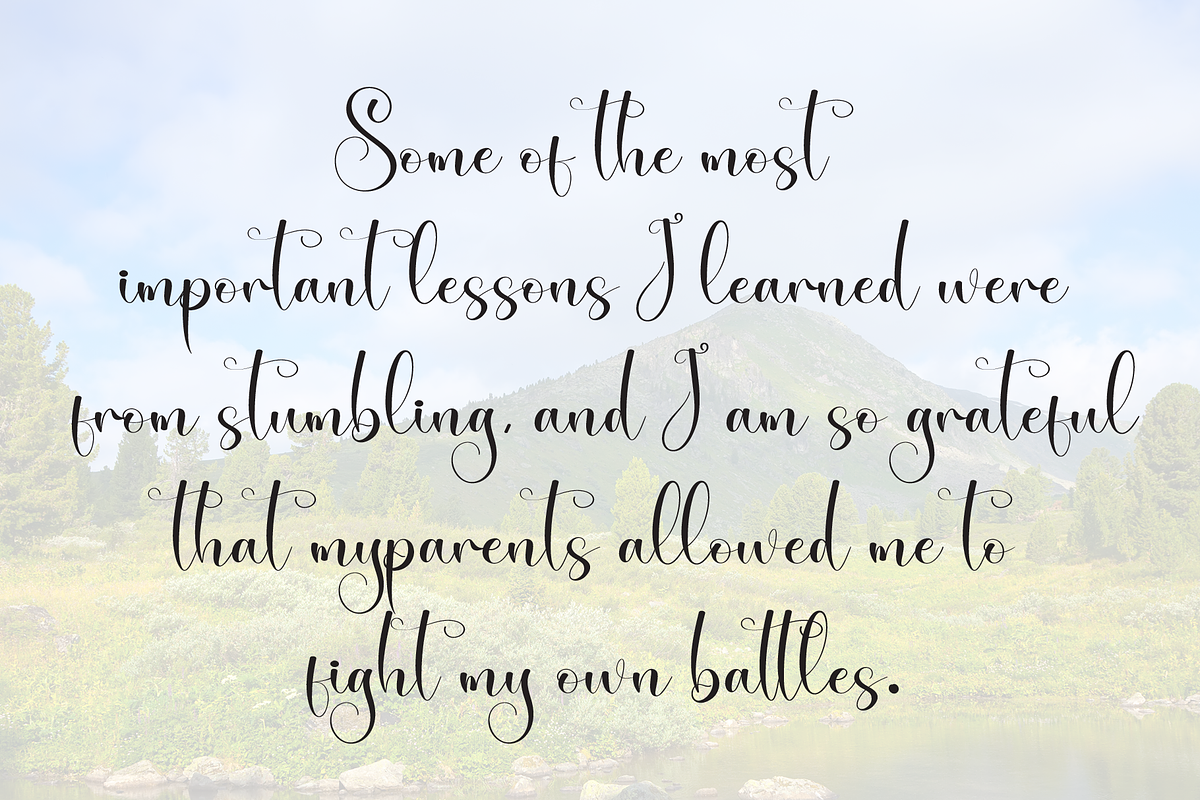 Some of the most
important lessons I learned were
from stumbling, and I am so grateful
that myparents allowed me to
fight my own battles.